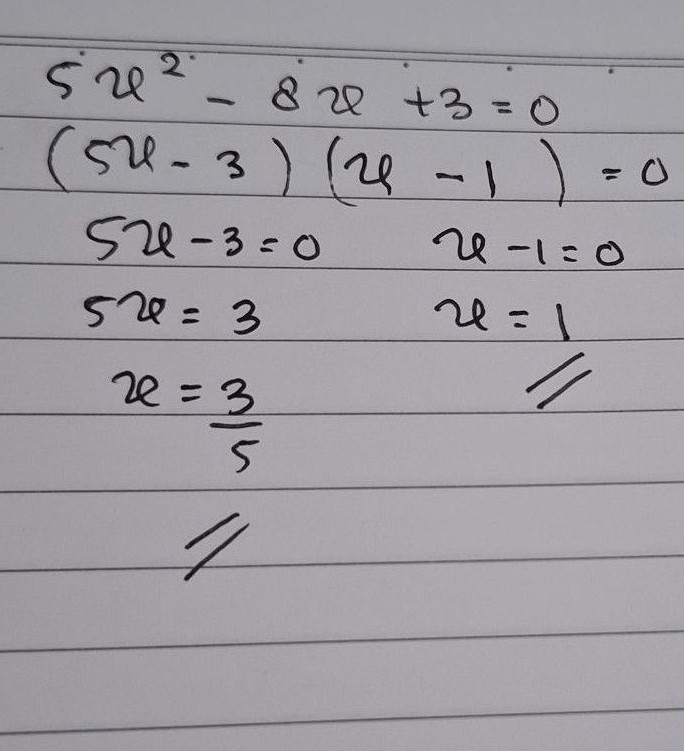 5x² - 8x + 3 = 0
(5x - 3) (x - 1) = 0
5x - 3 = 0 x - 1 = 0
5x = 3 x = 1
x = 3/5